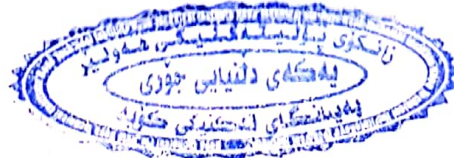 زانکۆی پۆلیتەکنیکی هەولێر
یەکەی دڵنیایی جۆری
پەیمانگای تەکنیکی کۆیە